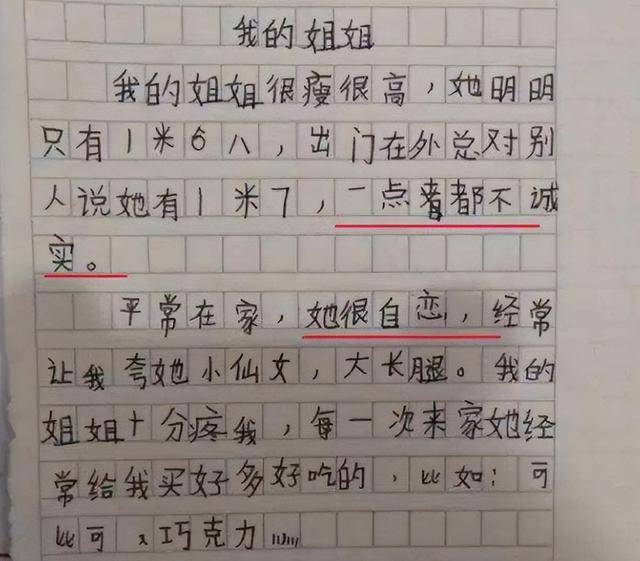 我的姐姐
我的姐姐很瘦很高，她明明
只有1米6八，出门在外总对别
人说她有1米7，一点都不诚
实。
平常在家，她很自恋，经常
让我夸她小仙女，大长腿。我的
姐姐十分疼我，每一次来家她经
常给我买好多好吃的，比如：可
比可、巧克力……